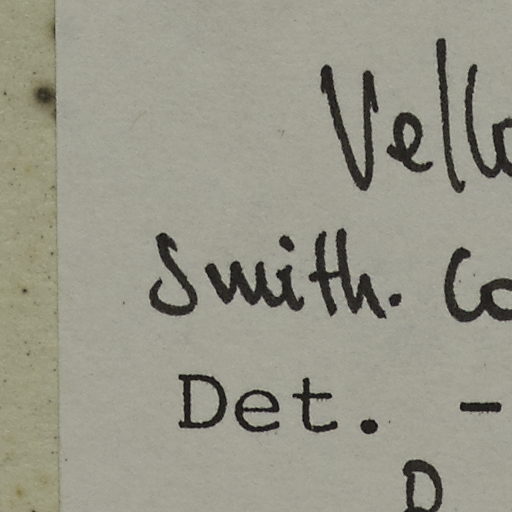 Vello
Smith. Co
Det. -